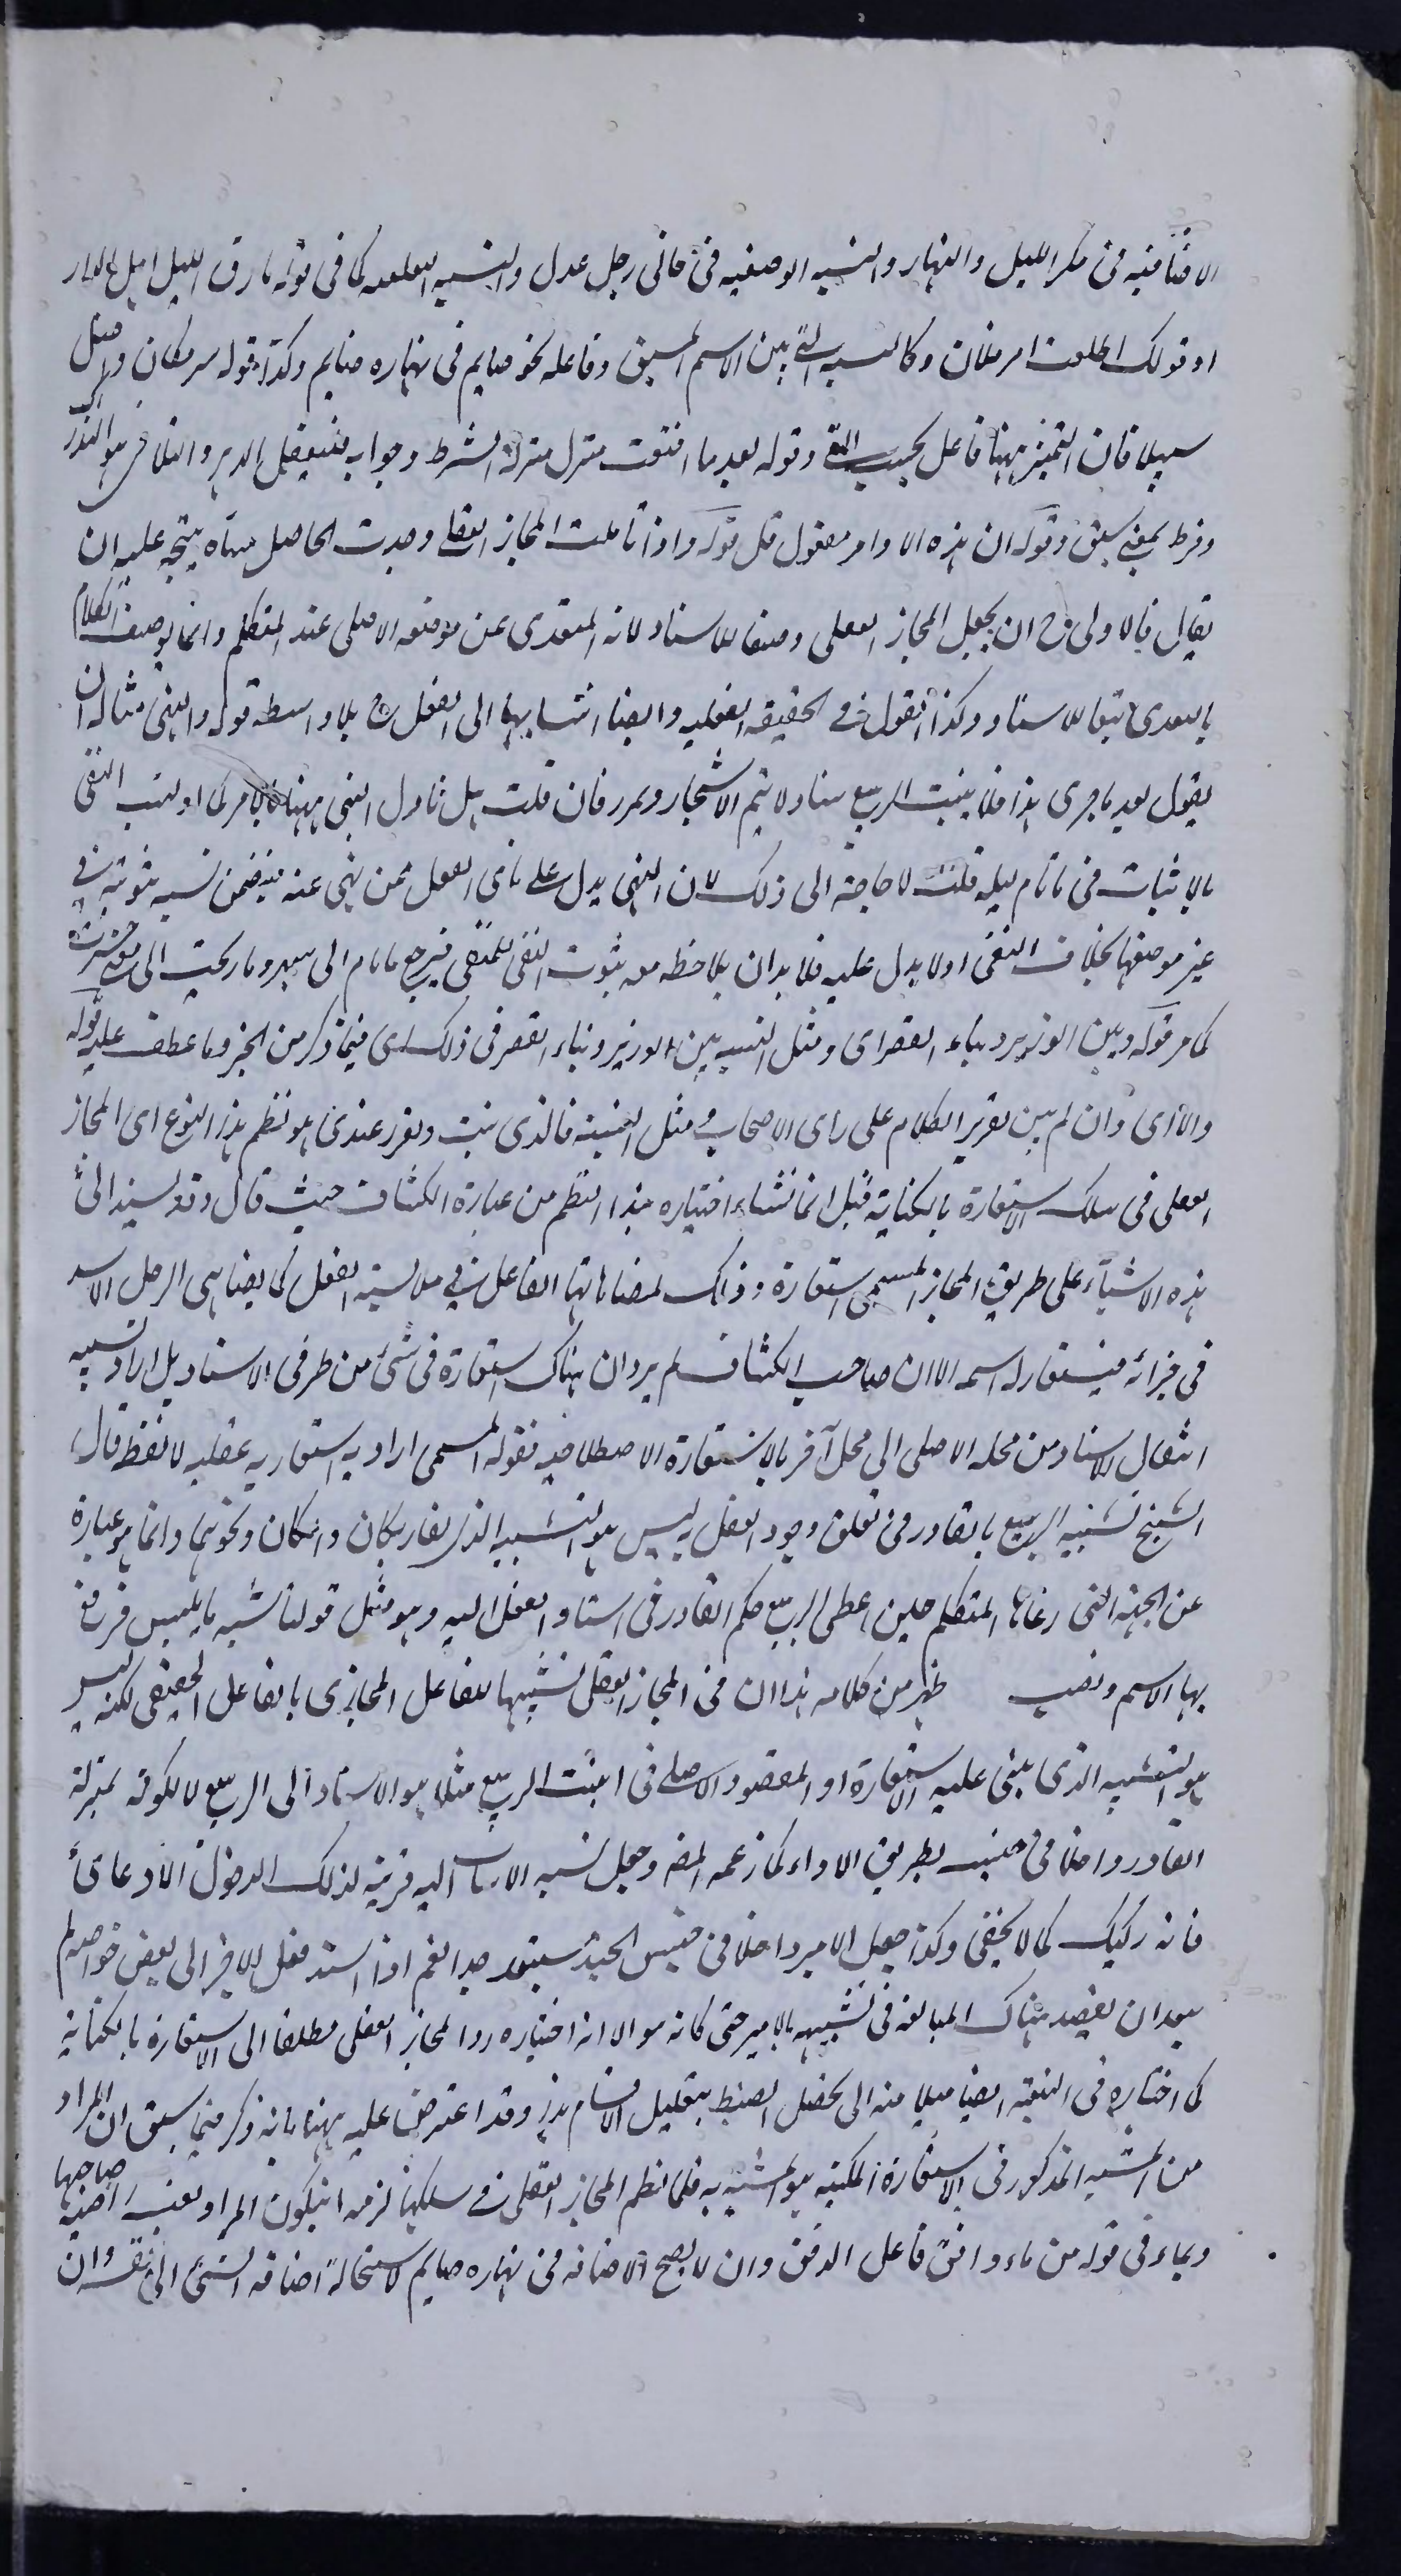 الاضافية فى مكر الليل والنهار والنسبه الوصفيه فى جانى رجل عدل والنسبه التعلقيه كما فى قوله يا سارق الليل اهل الدار
او قولك اطلعت امر فلان وكالنسبه التى بين الاسم المسبق وفاعله نحو صايم فى نهاره صايم وكذا قوله سر مكان واضل
سبيلا فان التميز ههنا فاعل بحسب المعنى وقوله بعد ما اتفقت منزل منزلة الشرط وجوابه
وفرط بمعنى سبق وقوله ان هذه الاوامر مفعول قل قوله واذا تاملت المجاز العقلى وجدت الحاصل منه يتجه عليه ان
يقال فالاولى ح ان يجعل المجاز العقلى وصفا للاسناد لانه المتعدى عن موضعه الاصلى عند المتكلم وانما يوصف الكلام
بالتعدى تبعا للاسناد وكذا القول فى الحقيقه العقليه وايضا انتسابهما الى العقل ح بلا واسطه قوله والنهى مثاله ان
يقول بعد ما جرى هذا فلا ينبت الربيع سناد لا يتم الاشجار فان قلت هل تاول النهى ههنا بالامر كما اولت النفى
بالاثبات فى ما نام ليله قلت لا حاجة الى ذلك لان النهى يدل على نافى الفعل عمن نهى عنه فيتضمن نسبه ثبوتيه فى
غير موضعها بخلاف النفى اولا يدل عليه فلا بد ان يلاحظ معه ثبوت النفى للمنفى فيرجع ما نام الى سهر وما ربحت الى معنى خسرت
كما مر قوله وبين الوزير وبناء القصر اى ومثل النسب بين الوزير وبناء القصر فى ذلك اى فيما ذكر من الخبر وما عطف عليه قوله
والا اى وان لم يبن تقرير الكلام على راى الاصحاب ومثل النسبة فالذى ثبت وتقرر عندى هو نظم هذا النوع اى المجاز
العقلى فى سلك الاستعارة بالكناية قيل انما نشاء اختياره هذا النظم من عبارة الكشاف حيث قال وقد يسند الى
هذه الاشياء على طريق المجاز المسمى استعارة وذلك لمضاهاتها الفاعل فى ملابسة الفعل كما يضاهى الرجل الاسد
فى جرائه فيستعار له اسمه الا ان صاحب الكشاف لم يرد ان هناك استعارة فى شئ من طرفى الاسناد بل اراد تشبيه
انتقال الاسناد من محله الاصلى الى محل آخر بالاستعارة الاصطلاحيه فقوله المسمى اراد به استعاريه عقليه لا لفظ قال
الشيخ تشبيه الربيع بالقادر فى تعلق وجود الفعل به ليس هو التشبيه الذى يفاد بكان والكان ونحوهما وانما هو عبارة
عن الجهة التى رعاها المتكلم حين اعطى الربيع حكم القادر فى اسناد الفعل اليه وهو مثل قولنا شبه ما بليس فرفع
بها الاسم ونصب ظهر من كلامه هذا ان فى المجاز العقلى تشبيها للفاعل المجازى بالفاعل الحقيقى لكنه ليس
هو التشبيه الذى يبنى عليه الاستعارة او المقصود الاصلى فى انبت الربيع مثلا هو الاسناد الى الربيع لا لكونه بمنزلة
القادر داخلا فى جنسه بطريق الادعاء كما زعمه المصه وجعل نسبه الانبات اليه قرينة لذلك الدخول الادعائى
فانه ركيك كما لا يخفى وكذا جعل الامير داخلا فى جنس الجند مستبعد جدا نعم اذا اسند فعل الامير الى بعض خواصه لم
يبعد ان يقصد هناك المبالغه فى تشبيهه بالامير حتى كانه هو الا انه اختياره رد المجاز العقلى مطلقا الى الاستعارة بالكناية
كما اختاره فى التبعية ايضا ميلا منه الى تحصيل الضبط بتقليل الاقسام هذا وقد اعترض عليه ههنا بانه ذكر فيما سبق ان المراد
من المشبه المذكور فى الاستعارة المكنيه هو المشبه به فلما نظم المجاز العقلى فى سلكها لزمه ان يكون المراد بعيشة صاحبها
وبماء فى قوله من ماء دافق فاعل الدفق وان لا يصح الاضافه فى نهاره صايم لاستحالة اضافه الشئ الى نفسه وان